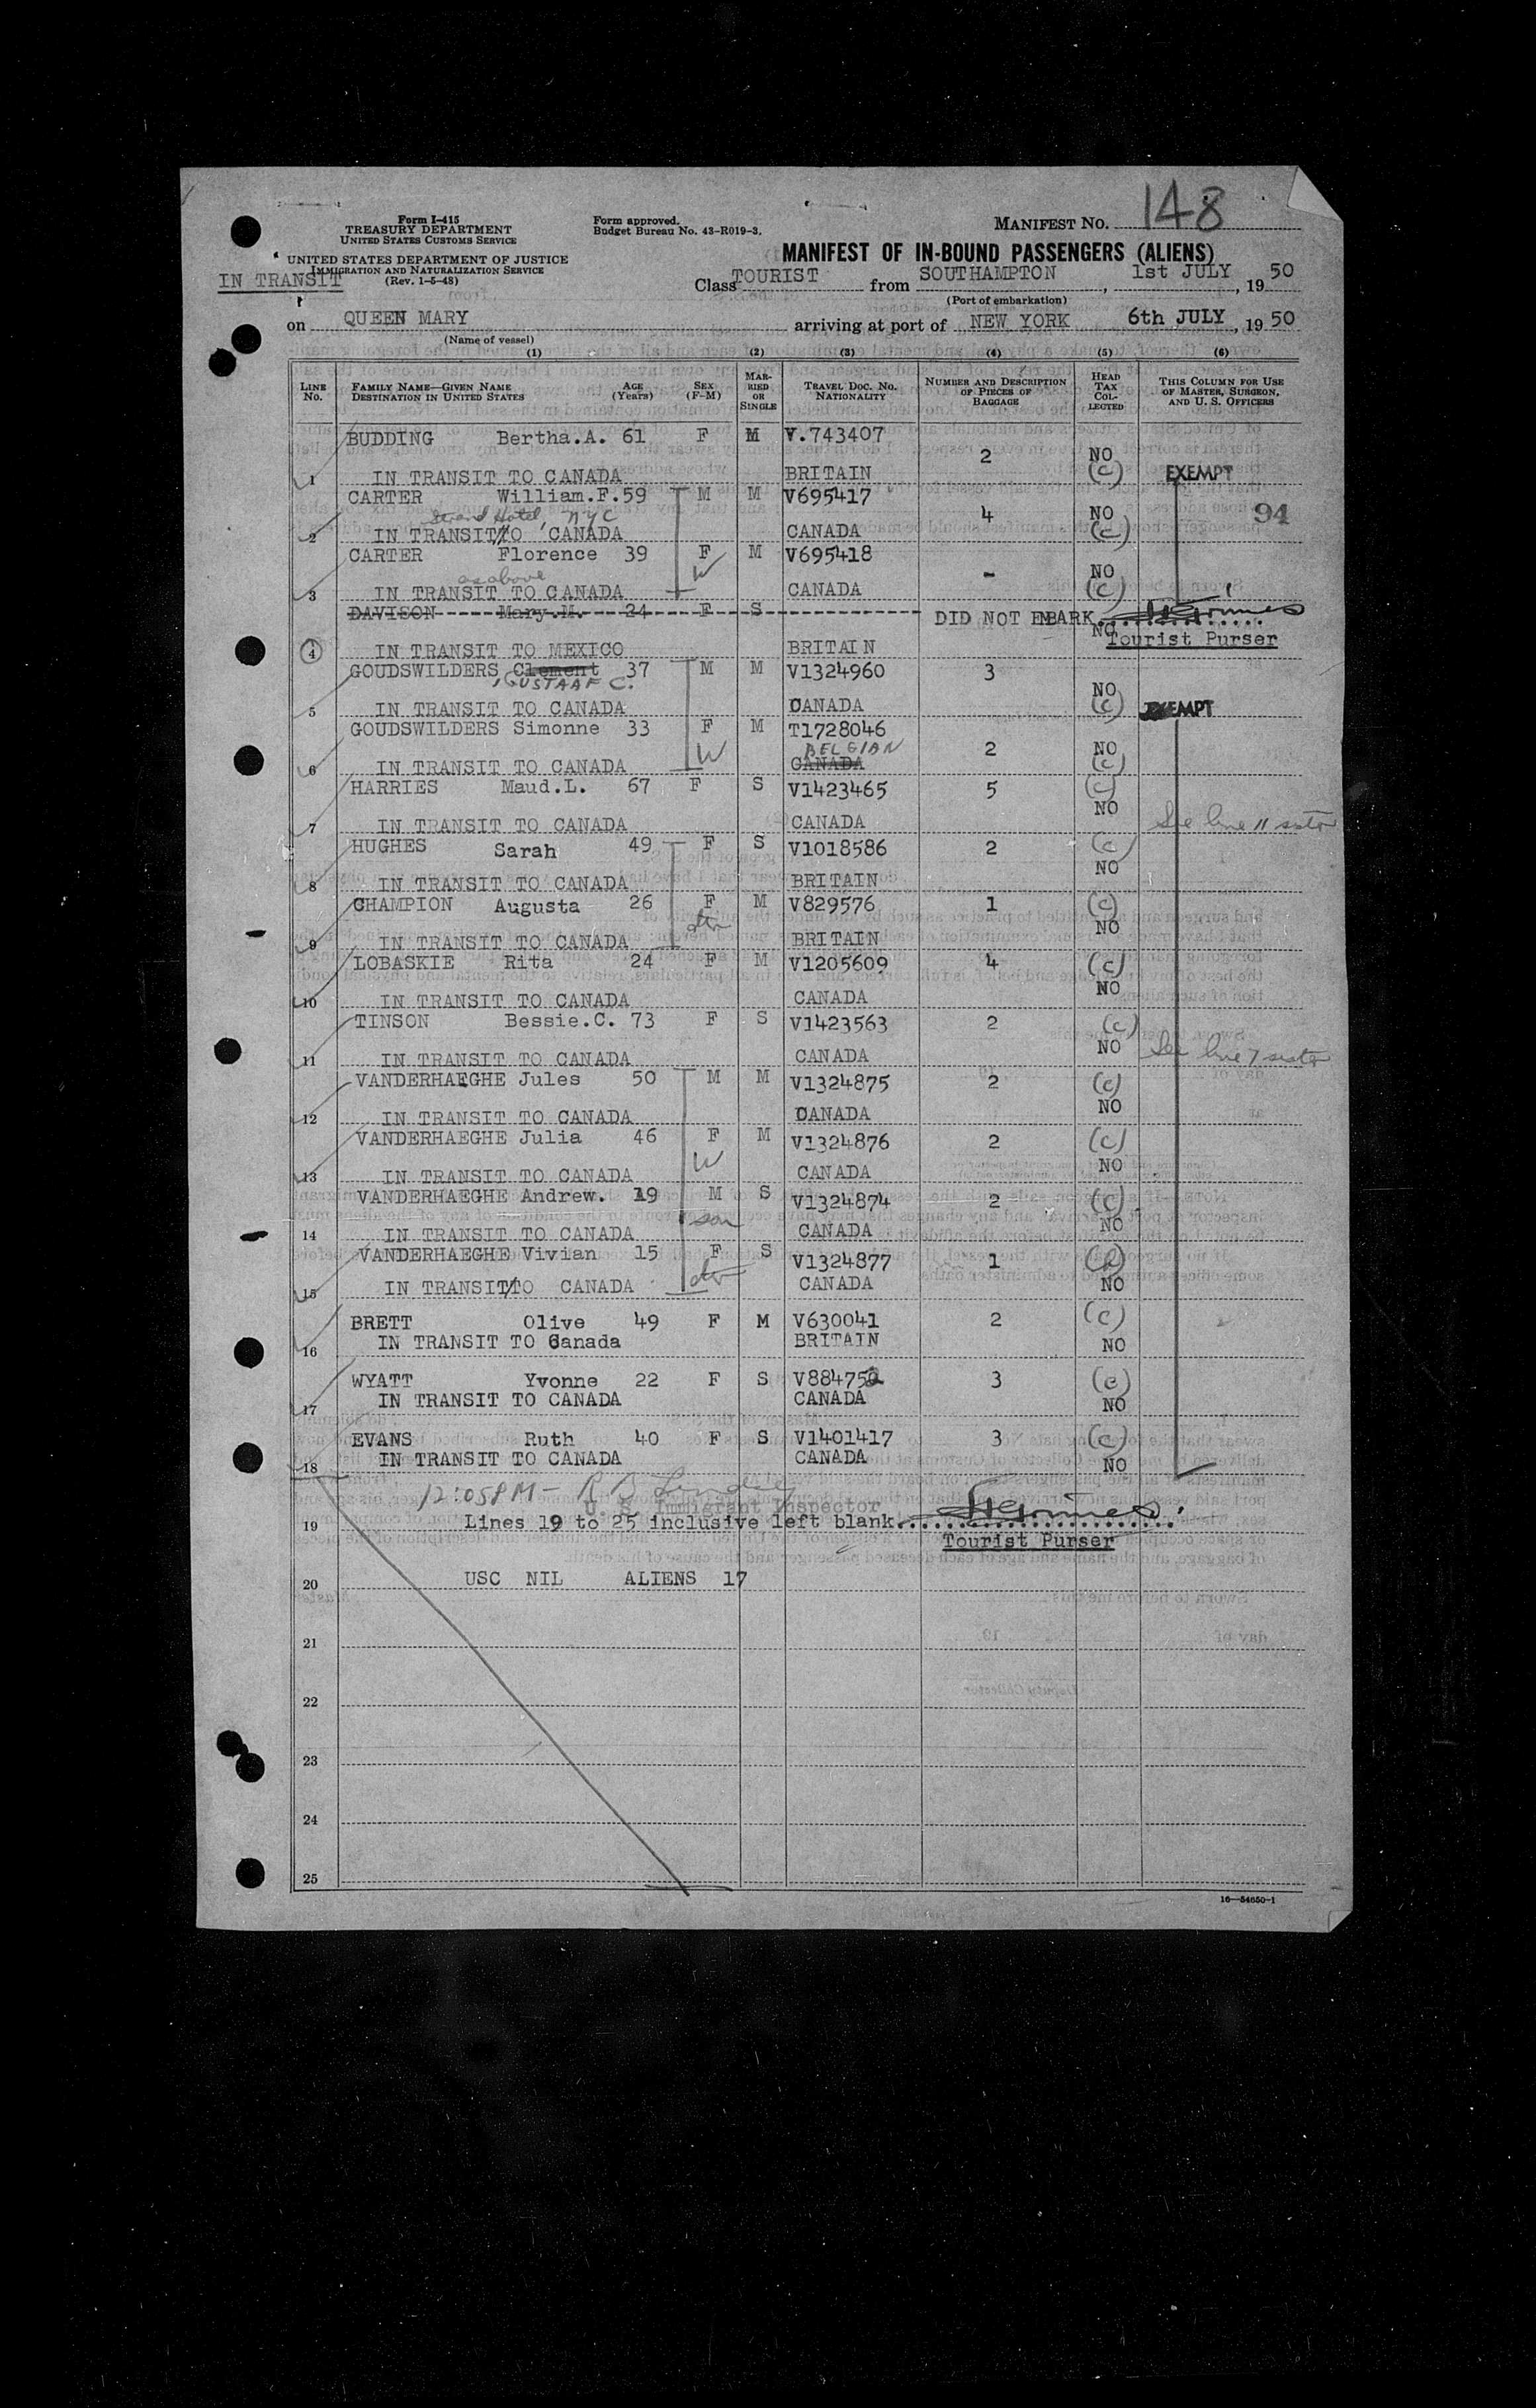 Form I-415
TREASURY DEPARTMENT
UNITED STATES CUSTOMS SERVICE
UNITED STATES DEPARTMENT OF JUSTICE
IMMIGRATION AND NATURALIZATION SERVICE
(Rev. 1-5-48)
IN TRANSIT
Form approved.
Budget Bureau No. 43-R019-3.
MANIFEST NO. 148
MANIFEST OF IN-BOUND PASSENGERS (ALIENS)
Class TOURIST from SOUTHAMPTON, 1st JULY, 1950
(Port of embarkation)
on QUEEN MARY arriving at port of NEW YORK 6th JULY, 1950
(Name of vessel)
(1) (2) (3) (4) (5) (6)
LINE NO. FAMILY NAME—GIVEN NAME DESTINATION IN UNITED STATES AGE (YEARS) SEX (F-M) MARRIED OR SINGLE TRAVEL DOC. NO. NATIONALITY NUMBER AND DESCRIPTION OF PIECES OF BAGGAGE HEAD TAX COLLECTED THIS COLUMN FOR USE OF MASTER, SURGEON, AND U. S. OFFICERS
BUDDING Bertha.A. 61 F M V.743407
2 NO
1 IN TRANSIT TO CANADA BRITAIN (c) EXEMPT
CARTER William.F. 59 M M V695417
Strand Hotel, NYC 4 NO 94
2 IN TRANSIT/TO CANADA CANADA (c)
CARTER Florence 39 F M V695418
as above W - NO
3 IN TRANSIT TO CANADA CANADA (c)
DAVISON Mary.M. 24 F S DID NOT EMBARK
NO Tourist Purser
4 IN TRANSIT TO MEXICO BRITAIN
GOUDSWILDERS Clement 37 M M V1324960 3
GUSTAAF C. NO
5 IN TRANSIT TO CANADA CANADA (c) EXEMPT
GOUDSWILDERS Simonne 33 F M T1728046
W BELGIAN 2 NO
6 IN TRANSIT TO CANADA CANADA (c)
HARRIES Maud.L. 67 F S V1423465 5 (c)
NO
7 IN TRANSIT TO CANADA CANADA See line 11 sister
HUGHES Sarah 49 F S V1018586 2 (c)
NO
8 IN TRANSIT TO CANADA BRITAIN
CHAMPION Augusta 26 F M V829576 1 (c)
dtr NO
9 IN TRANSIT TO CANADA BRITAIN
LOBASKIE Rita 24 F M V1205609 4 (c)
NO
10 IN TRANSIT TO CANADA CANADA
TINSON Bessie.C. 73 F S V1423563 2 (c)
NO
11 IN TRANSIT TO CANADA CANADA See line 7 sister
VANDERHAEGHE Jules 50 M M V1324875 2 (c)
NO
12 IN TRANSIT TO CANADA CANADA
VANDERHAEGHE Julia 46 F M V1324876 2 (c)
W NO
13 IN TRANSIT TO CANADA CANADA
VANDERHAEGHE Andrew. 19 M S V1324874 2 (c)
son NO
14 IN TRANSIT TO CANADA CANADA
VANDERHAEGHE Vivian 15 F S V1324877 1
dtr NO
15 IN TRANSIT/TO CANADA CANADA
BRETT Olive 49 F M V630041 2 (c)
16 IN TRANSIT TO Canada BRITAIN NO
WYATT Yvonne 22 F S V884752 3 (c)
17 IN TRANSIT TO CANADA CANADA NO
EVANS Ruth 40 F S V1401417 3 (c)
18 IN TRANSIT TO CANADA CANADA NO
12:05PM -
U. S. Immigrant Inspector
19 Lines 19 to 25 inclusive left blank
Tourist Purser
20 USC NIL ALIENS 17
21
22
23
24
25
16—54650-1